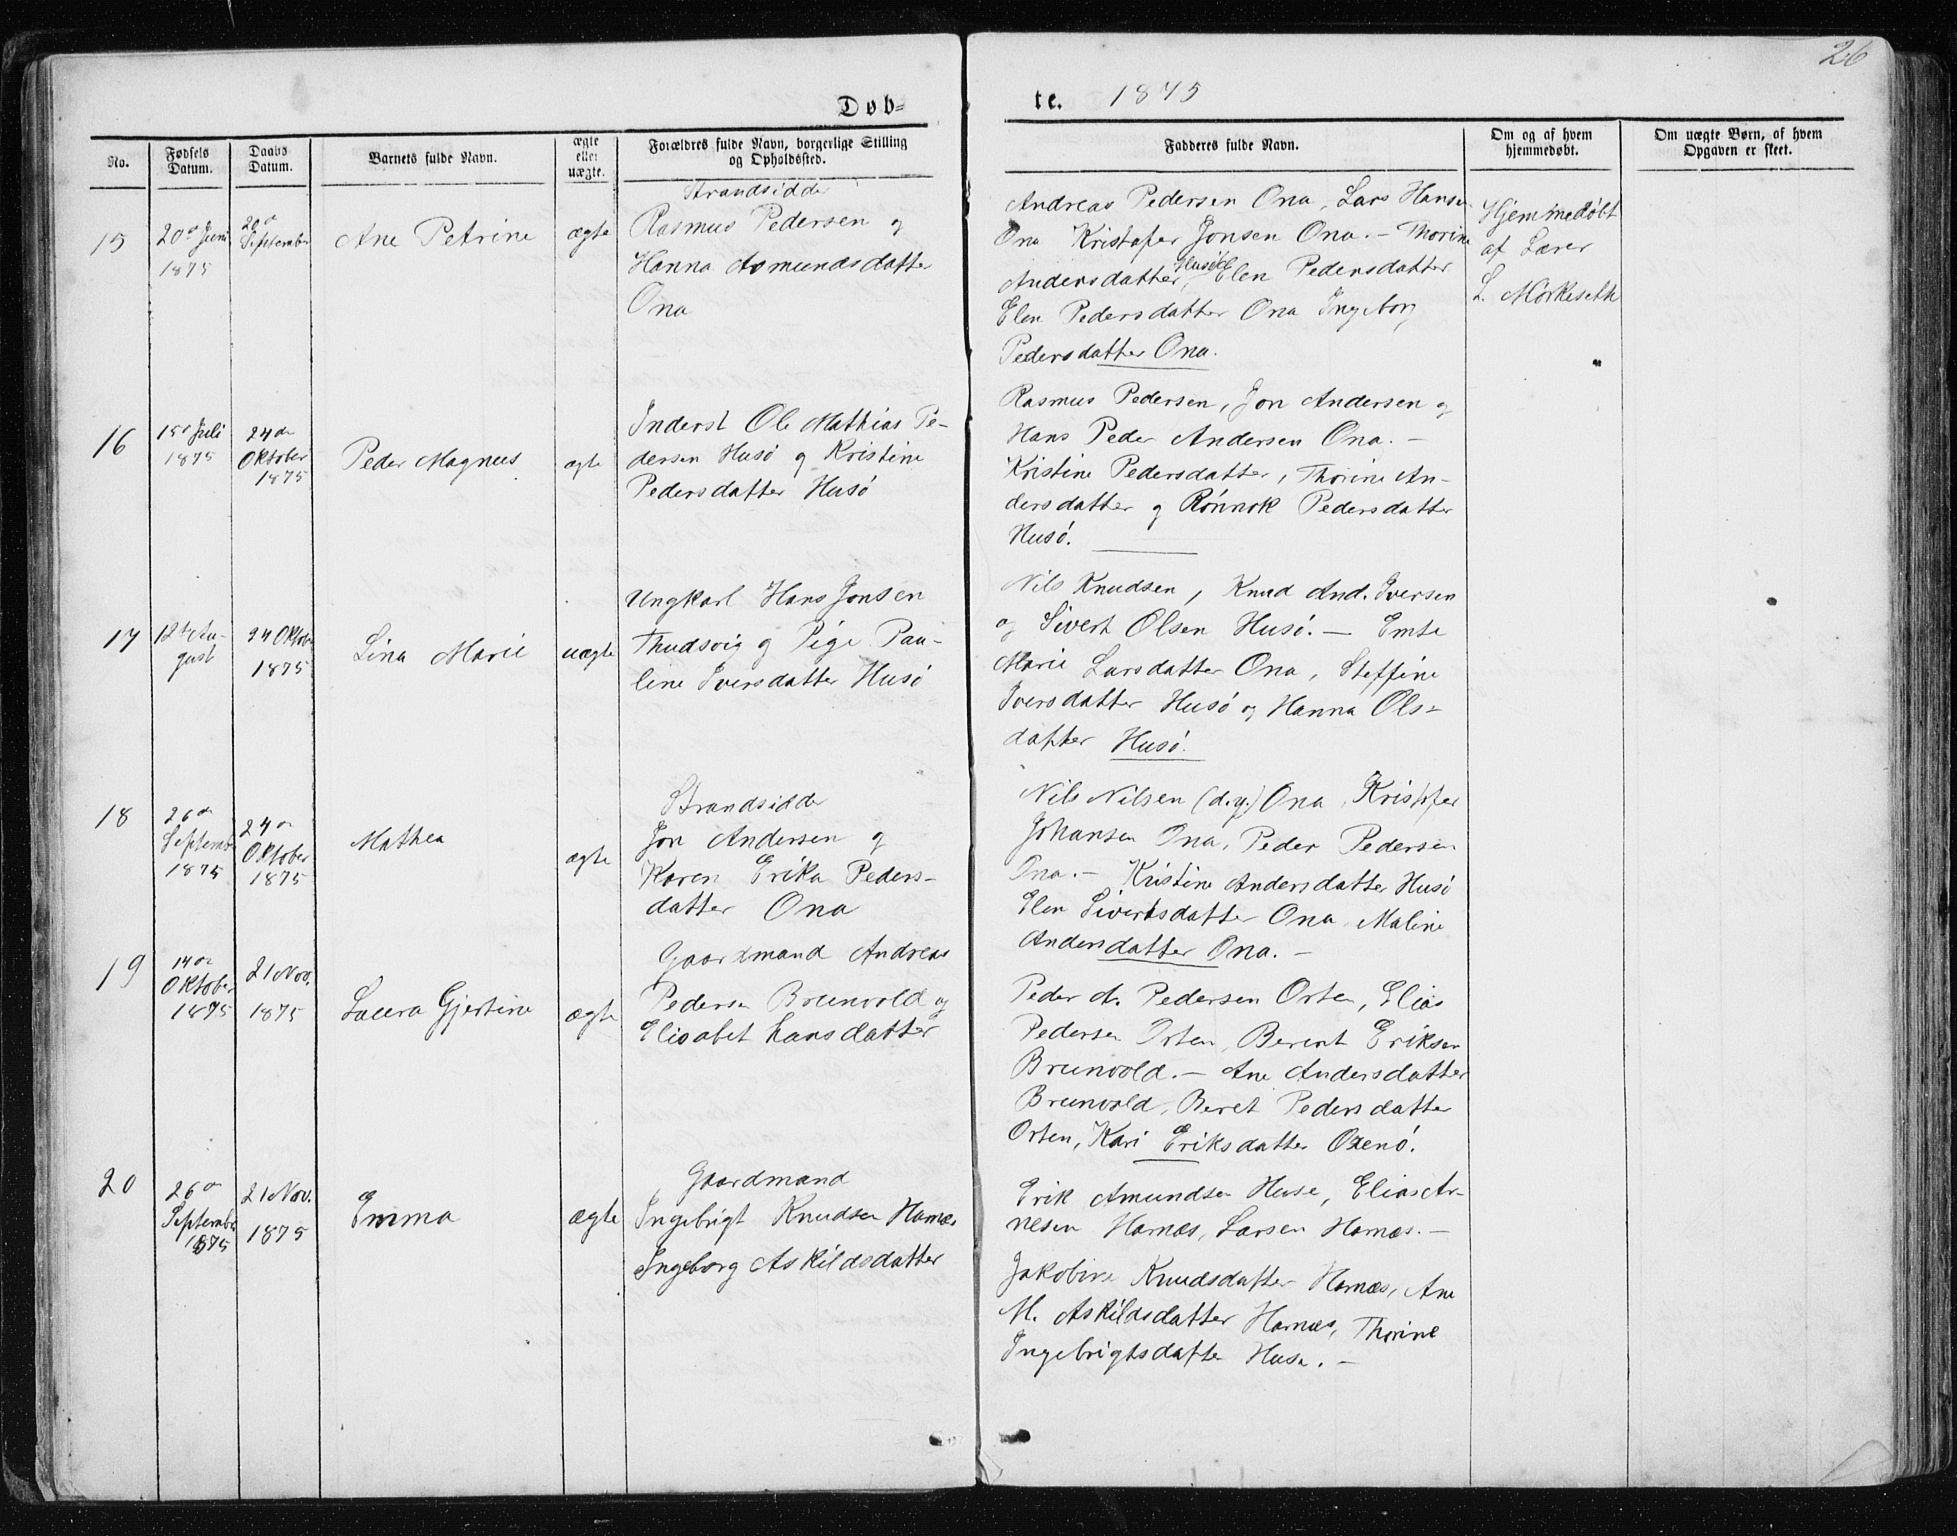 26
Døb=
te. 1875
No.
Fødsels Datum.
Daabs Datum.
Barnets fulde Navn.
ægte eller uægte.
Forældres fulde Navn, borgerlige Stilling og Opholdssted.
Fadderes fulde Navn.
Om og af hvem hjemmedøbt.
Om uægte Børn, af hvem Opgaven er skeet.
15
20de Juni
1875
20de
September
Ane Petrine
ægte
Strandsidder
Rasmus Pedersen og
Hanna Asmundsdatter
Ona
Andreas Pedersen Ona, Lars Hansen
Ona Kristofer Jonsen Ona. - Thorine
Andersdatter, Husö Elen Pedersdatter
Elen Pedersdatter Ona Ingeborg
Pedersdatter Ona.
Hjemmedøbt
af Lærer
L. Mörkeseth
16
15de Juli
1875
24de
Oktober
1875
Peder Magnus
ægte
Inderst Ole Mathias Pe-
dersen Husö og Kristine
Pedersdatter Husö
Rasmus Pedersen, Jon Andersen og
Hans Peder Andersen Ona. -
Kristine Pedersdatter, Thorine An-
dersdatter og Rönnok Pedersdatter
Husö.
17
12te Au-
gust
24 Oktober
1875
Lina Marie
uægte
Ungkarl Hans Jonsen
Thudsvig og Pige Pau-
line Iversdatter Husö
Nils Knudsen, Knud And. Iversen
og Sivert Olsen Husö. - Emte
Marie Larsdatter Ona, Steffine
Iversdatter Husö og Hanna Ols-
datter Husö.
18
26de
September
1875
24de
Oktober
1875
Mathea
ægte
Strandsidder
Jon Andersen og
Karen Erika Peders-
datter Ona
Nils Nilsen (d.y.) Ona, Kristofer
Johansen Ona, Peder Pedersen
Ona. - Kristine Andersdatter Husö
Elen Sivertsdatter Ona Maline
Andersdatter Ona. -
19
14de
Oktober
1875
21 Nov.
1875
Laura Gjertine
ægte
Gaardmand Andreas
Pedersen Brunvold og
Elisabet Hansdatter
Peder A. Pedersen Orten, Elias
Pedersen Orten, Berent Eriksen
Brunvold. - Ane Andersdatter
Brunvold, Beret Pedersdatter
Orten, Kari Eriksdatter Oxenö.
20
26de
September
1875
21 Nov.
1875
Emma
ægte
Gaardmand
Ingebrigt Knudsen Harnæs
Ingeborg Askildsdatter
Erik Amundsen Huse, Elias Ar-
nesen Harnæs, Larsen Harnæs. -
Jakobine Knudsdatter Harnæs, Ane
M. Askildsdatter Harnæs, Thorine
Ingebrigtsdatter Huse. -